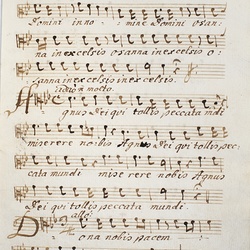 Domini in no - mine Domini osan:
na in excelsis osanna in excelsis o:
sanna in excelsis in excelsis.
molto.
Agnus Dei qui tollis peccata mdi
miserere nobis Agnus Dei qui tollis pec:
cata mundi miserere nobis Agnus
Dei qui tollis peccata mundi.
allo:
Dona nobis pacem